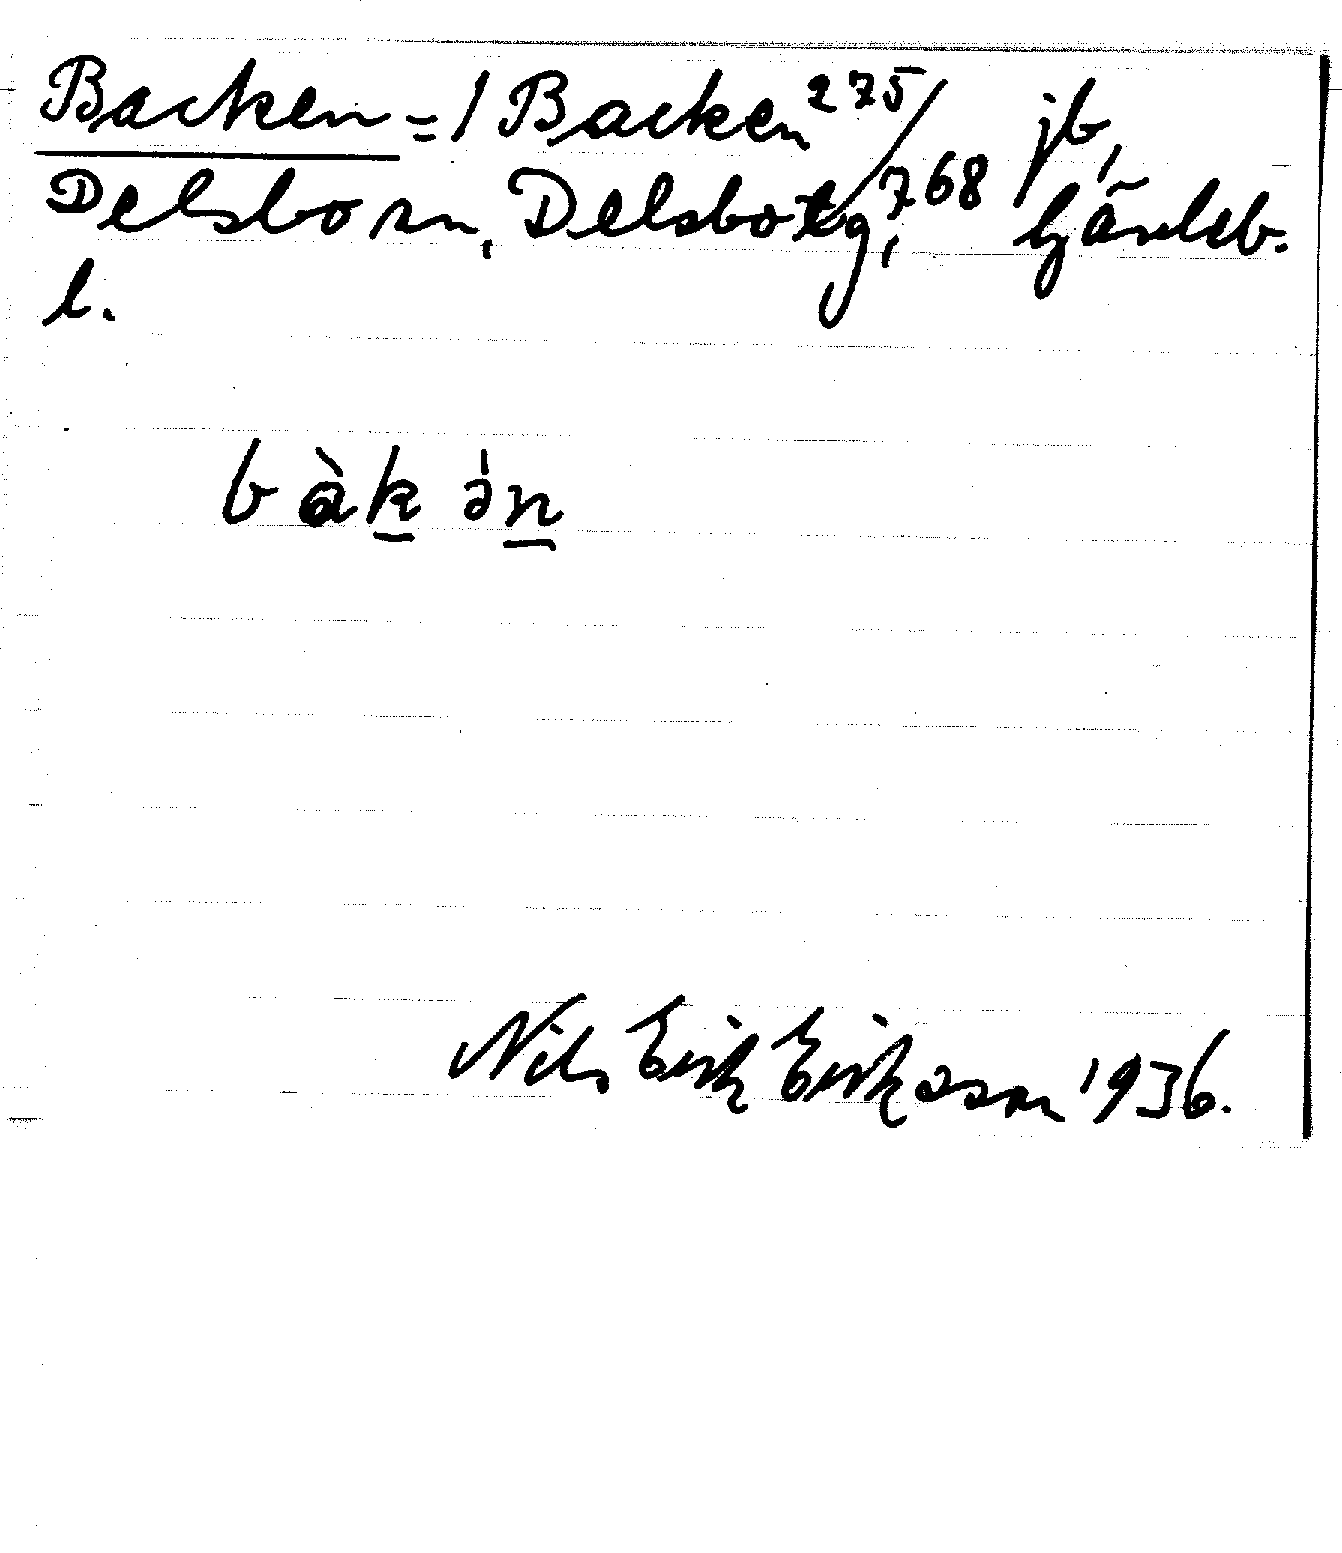 Backen = / Backen 275/768 jb,
Delsbo sn, Delsbo tg, Gävleb.
l.
bàkə́n
Nils Erik Eriksson 1936.